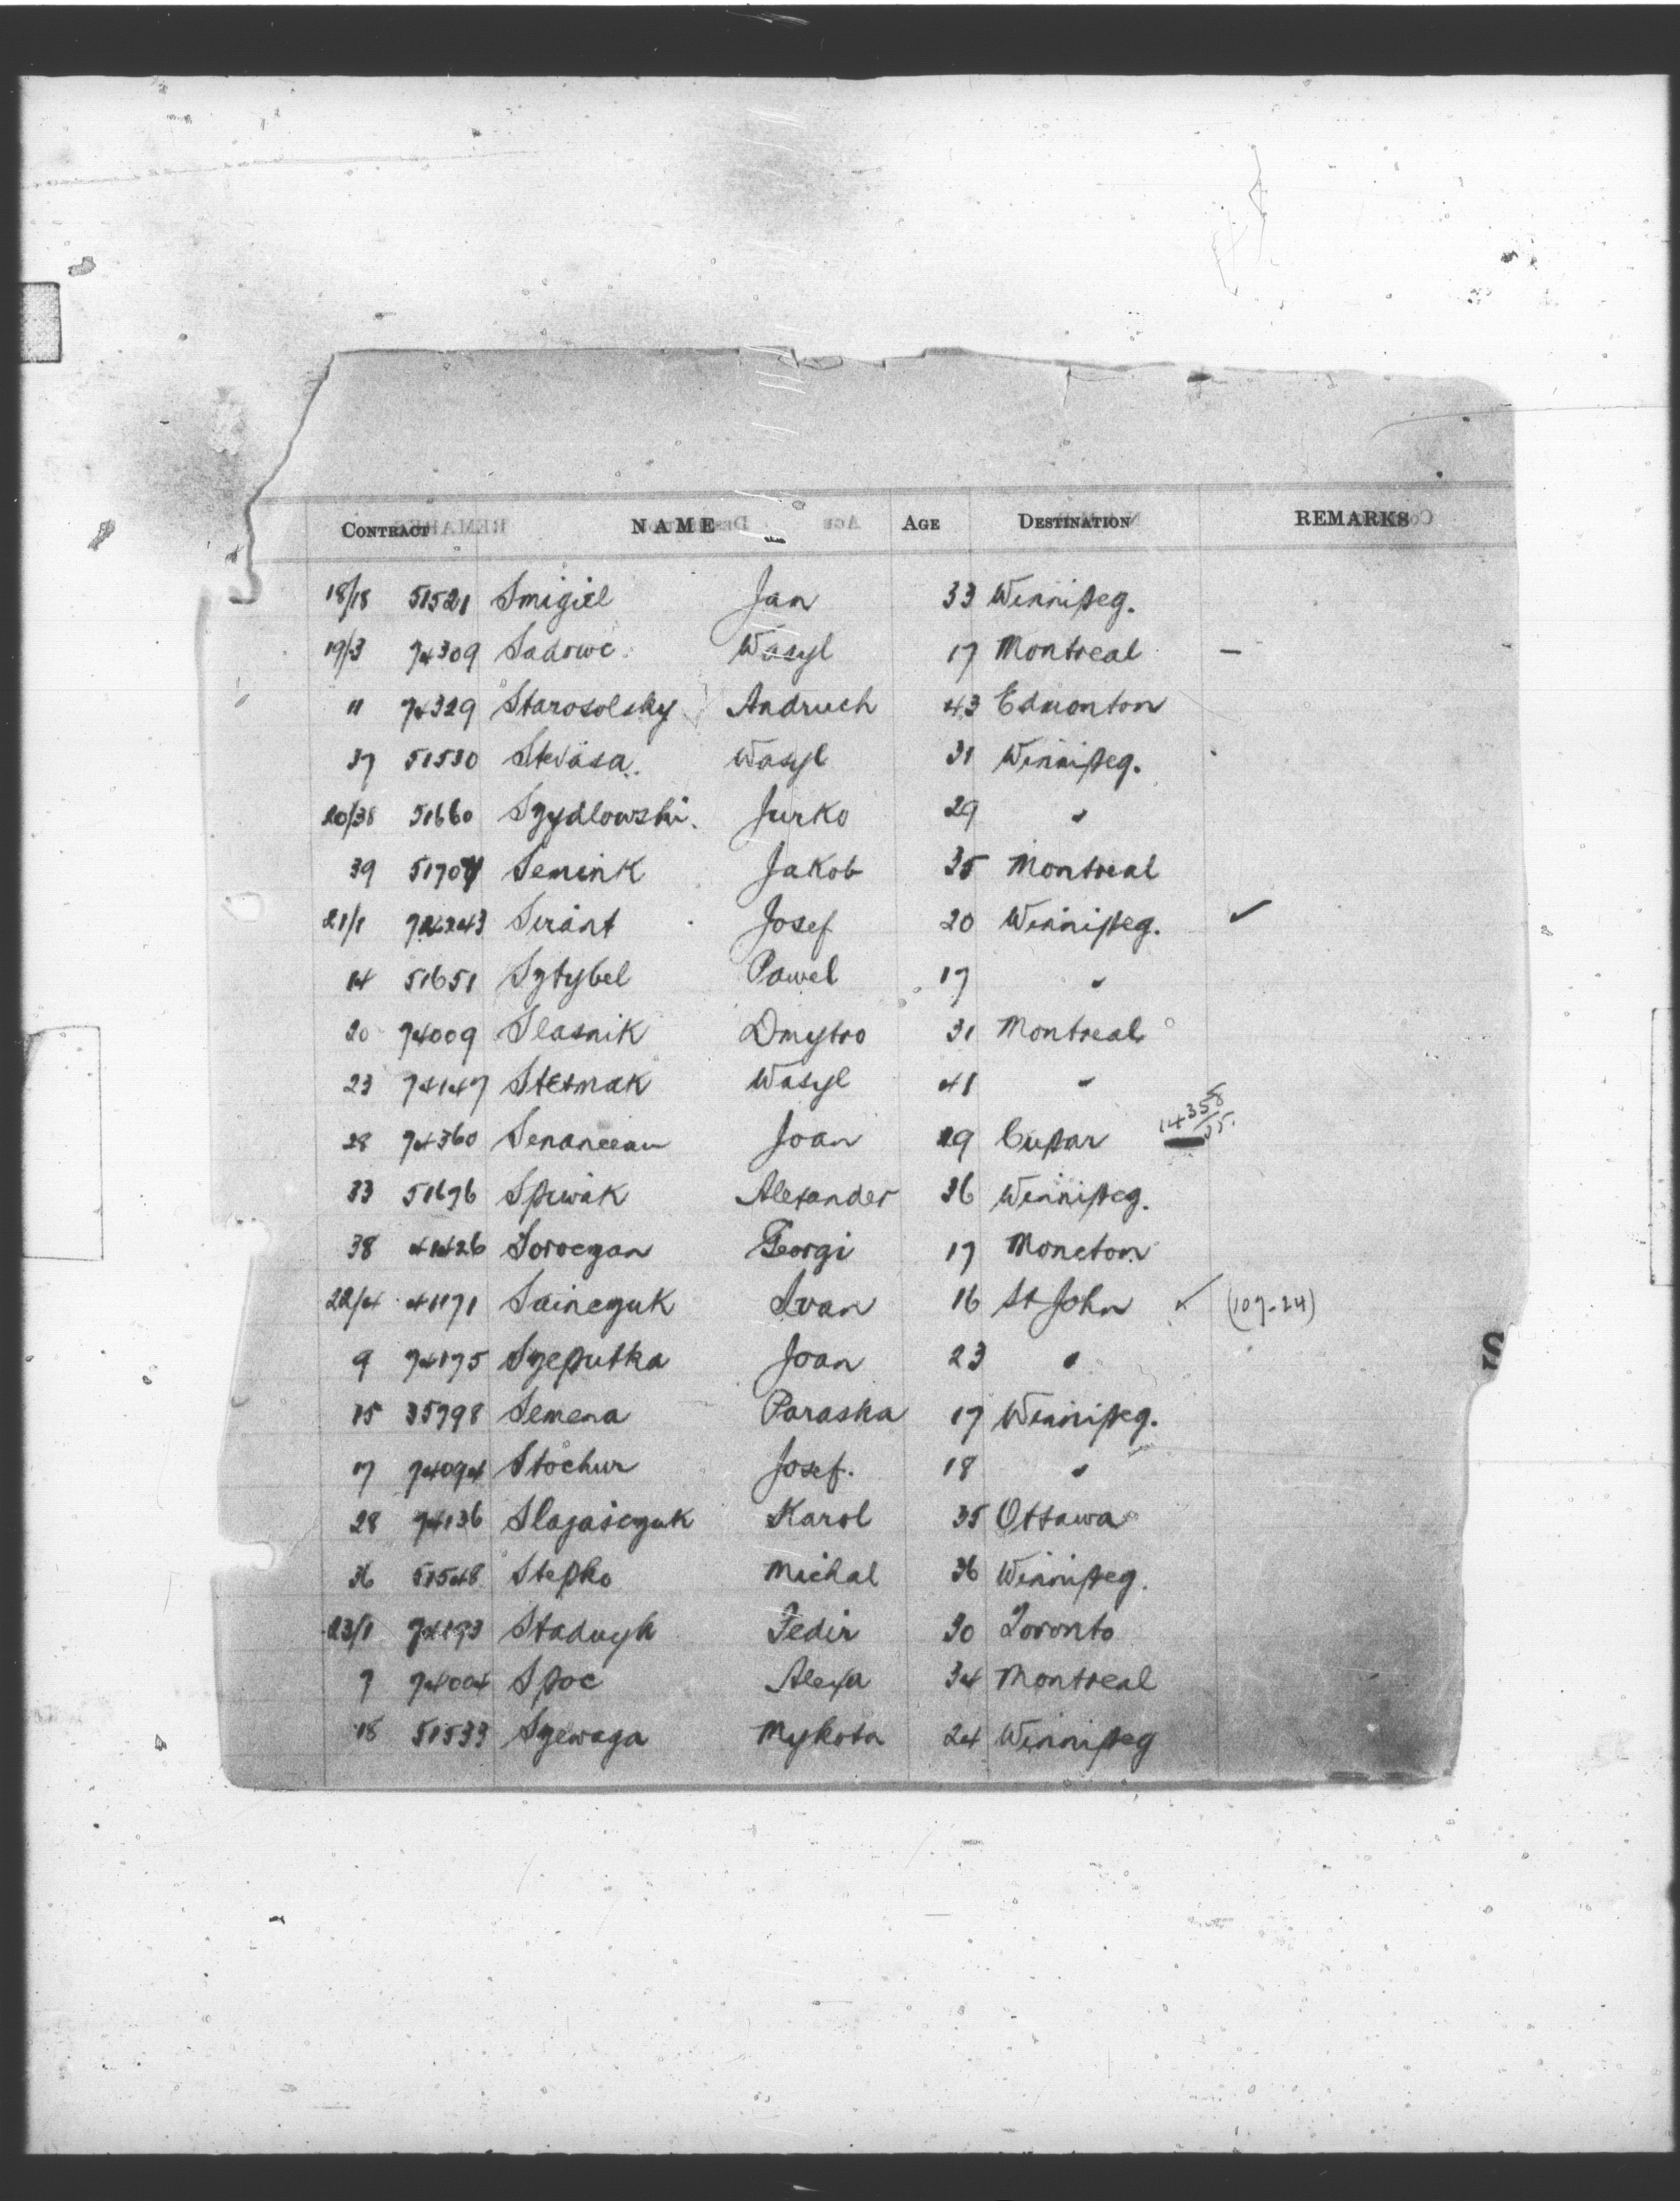 CONTRACT NAME AGE DESTINATION REMARKS
18/18 51521 Smigiel Jan 33 Winnipeg.
19/3 74309 Sadowc Wasyl 17 Montreal —
11 74329 Starosolsky Andruch 43 Edmonton
37 51530 Stevasa Wasyl 31 Winnipeg.
20/38 51660 Szydlowski. Jurko 29 "
39 Semink Jakob 35 Montreal
21/1 Sirant Josef 20 Winnipeg. ✓
14 51651 Sztybel Pawel 17 "
20 74009 Slasnik Dmytro 31 Montreal
23 74147 Stetmak Wasyl 41 "
28 74360 Joan 29 Cupar 14358/35.
33 51676 Spiwak Alexander 36 Winnipeg.
38 41426 Soroczan Georgi 17 Moncton
22/4 41171 Sainczuk Ivan 16 St John ✓ (107-24)
9 74175 Szeputka Joan 23 "
15 35798 Semena Paraska 17 Winnipeg.
17 74094 Stochur Josef. 18 "
28 74136 Karol 35 Ottawa
36 51548 Stepko Michal 36 Winnipeg.
23/1 74193 Fedir 30 Toronto
7 74004 Spoc Alexa 34 Montreal
18 51533 Szewaga Mykota 24 Winnipeg
S